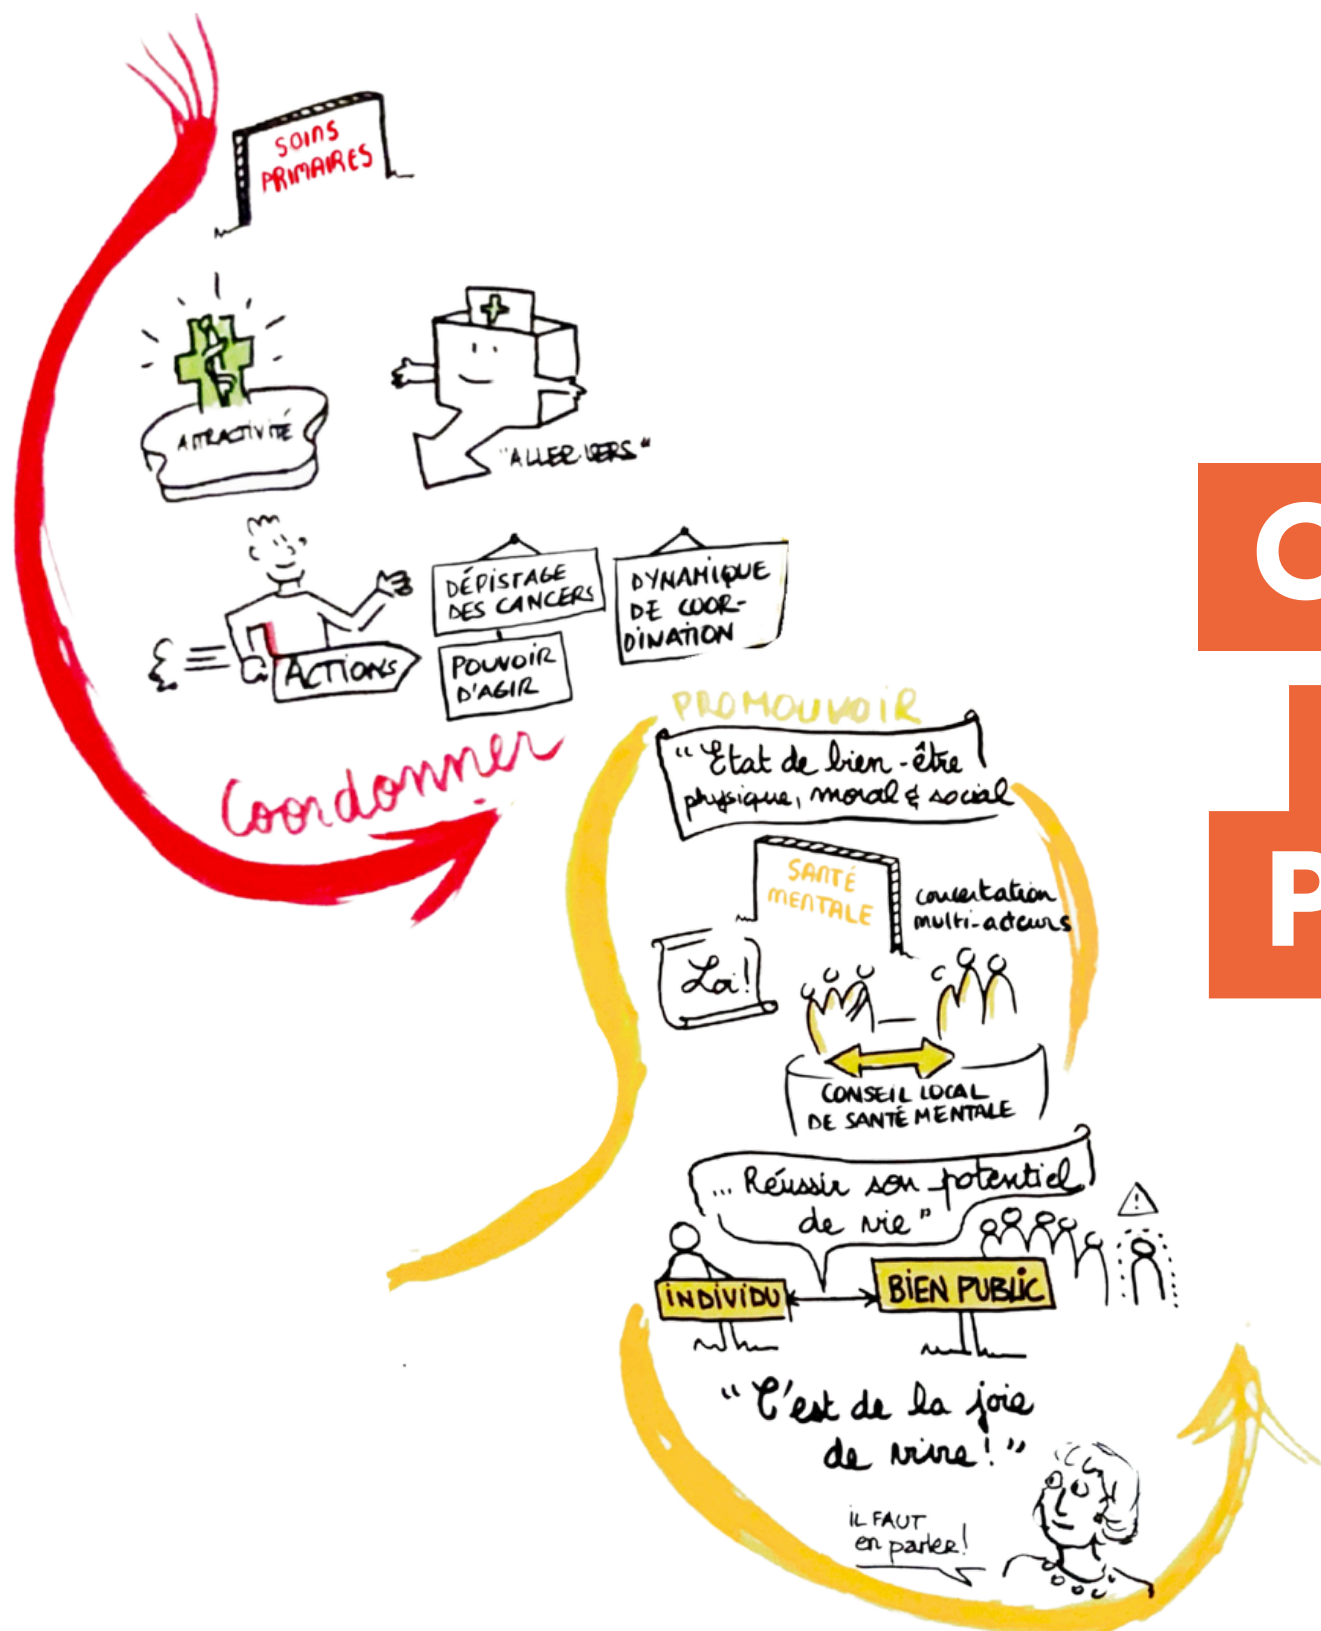 SOINS
PRIMAIRES
ATTRACTIVITÉ
"ALLER VERS"
ACTIONS
DÉPISTAGE
DES CANCERS
POUVOIR
D'AGIR
DYNAMIQUE
DE COOR-
DINATION
Coordonner
PROMOUVOIR
"Etat de bien-être
physique, moral & social
SANTÉ
MENTALE
concertation
multi-acteurs
Loi!
CONSEIL LOCAL
DE SANTÉ MENTALE
... Réussir son potentiel
de vie"
!
INDIVIDU
BIEN PUBLIC
"C'est de la joie
de vivre!"
IL FAUT
en parler!
C
P